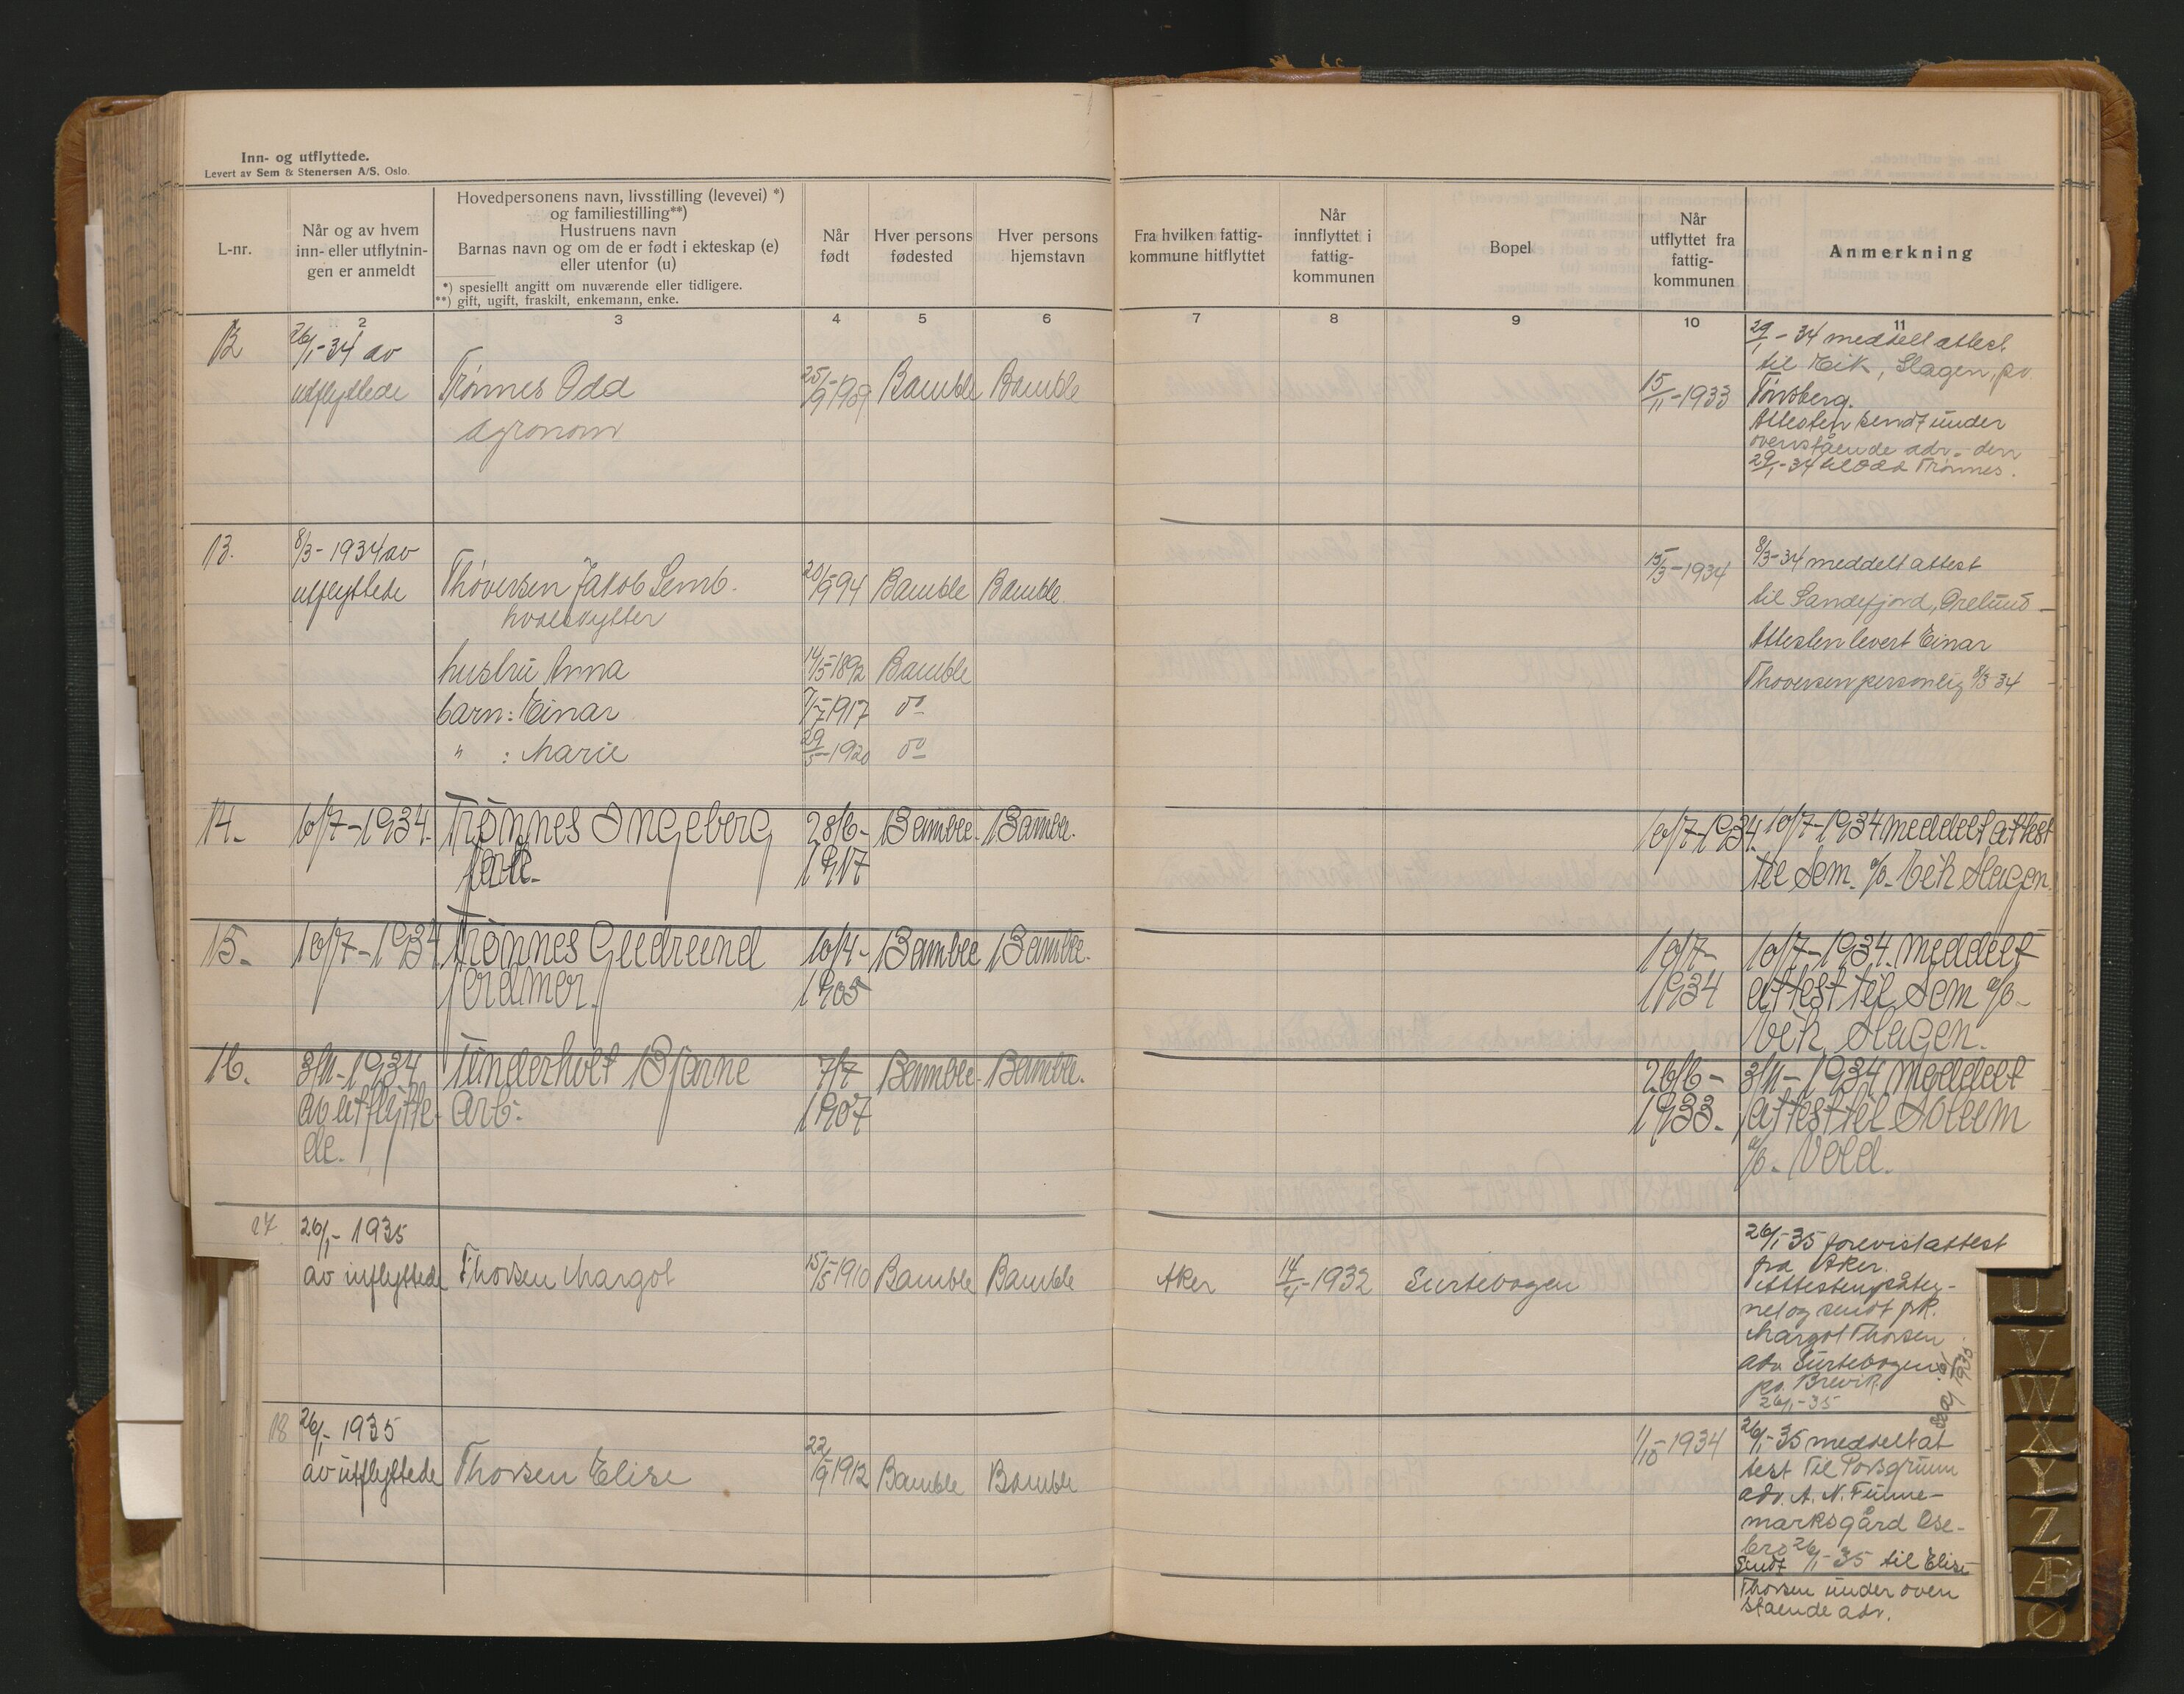 Inn- og utflyttede.
Levert av Sem & Stenersen A/S, Oslo.
L-nr.
Når og av hvem
inn- eller utflytnin-
gen er anmeldt
Hovedpersonens navn, livsstilling (levevei) *)
og familiestilling**)
Hustruens navn
Barnas navn og om de er født i ekteskap (e)
eller utenfor (u)
*) spesiellt angitt om nuværende eller tidligere.
**) gift, ugift, fraskilt, enkemann, enke.
Når
født
Hver persons
fødested
Hver persons
hjemstavn
Fra hvilken fattig-
kommune hitflyttet
Når
innflyttet i
fattig-
kommunen
Bopel
Når
utflyttet fra
fattig-
kommunen
Anmerkning
2 3 4 5 6 7 8 9 10 11
12 26/1-34 av
utflyttede Trønnes Odd 25/9-1909 Bamble Bamble 15/11-1933
agronom
29/1-34 meddelt attest
til Eik, Slagen, po
Tønsberg.
Attesten sendt under
ovenstående adr. den
29/1-34 til Odd Trønnes.
13. 8/3-1934 av
utflyttede Thoversen Jakob Semb. 20/9-94 Bamble Bamble. 15/3-1934
hvalskytter
hustru Anna 14/5-1892 Bamble
barn: Einar 7/7-1917 do
" : Marie 29/5-1920 do
8/3-34 meddelt attest
til Sandefjord,
Attesten levert Einar
Thoversen personlig 8/3 34
14. 10/7-1934. Trønnes Ingeberg 28/6- Bamble. Bamble. 10/7-1934.
1917
10/7-1934 meddelt attest
til Sem. a/b. Eik Slagen.
15. 10/7-1934 Trønnes Gudrund 10/4- Bamble Bamble. 10/7-
jordmor. 1905 1934
10/7-1934. meddelt
attest til Sem a/b.
Eik Slagen.
16. 3/11-1934 Tunderholt Bjarne 7/7 Bamble. Bamble. 26/6-
av utflytte- Arb. 1907 1933.
de.
3/11-1934 meddelt
attest til Solum
a/b. Vold.
17 26/1-1935
av inflyttede Thorsen Margot 15/5-1910 Bamble Bamble Aker 14/4-1932 Surtebogen
26/1-35 forevist attest
fra Aker.
Attesten påteg-
net og sendt frk.
Margot Thorsen
adr. Surtebogen
po. Brevik
26/1-35
18 26/1-1935
av utflyttede Thorsen Elise 22/9-1912 Bamble Bamble 1/10-1934
26/1-35 meddelt at
test til Porsgrunn
adr. A. N.
marksgård Ose-
bro 26/1-35 til Elise
Sendt
Thorsen under oven
stående adr.
U
V
W
X
Y
Z
Æ
Ø